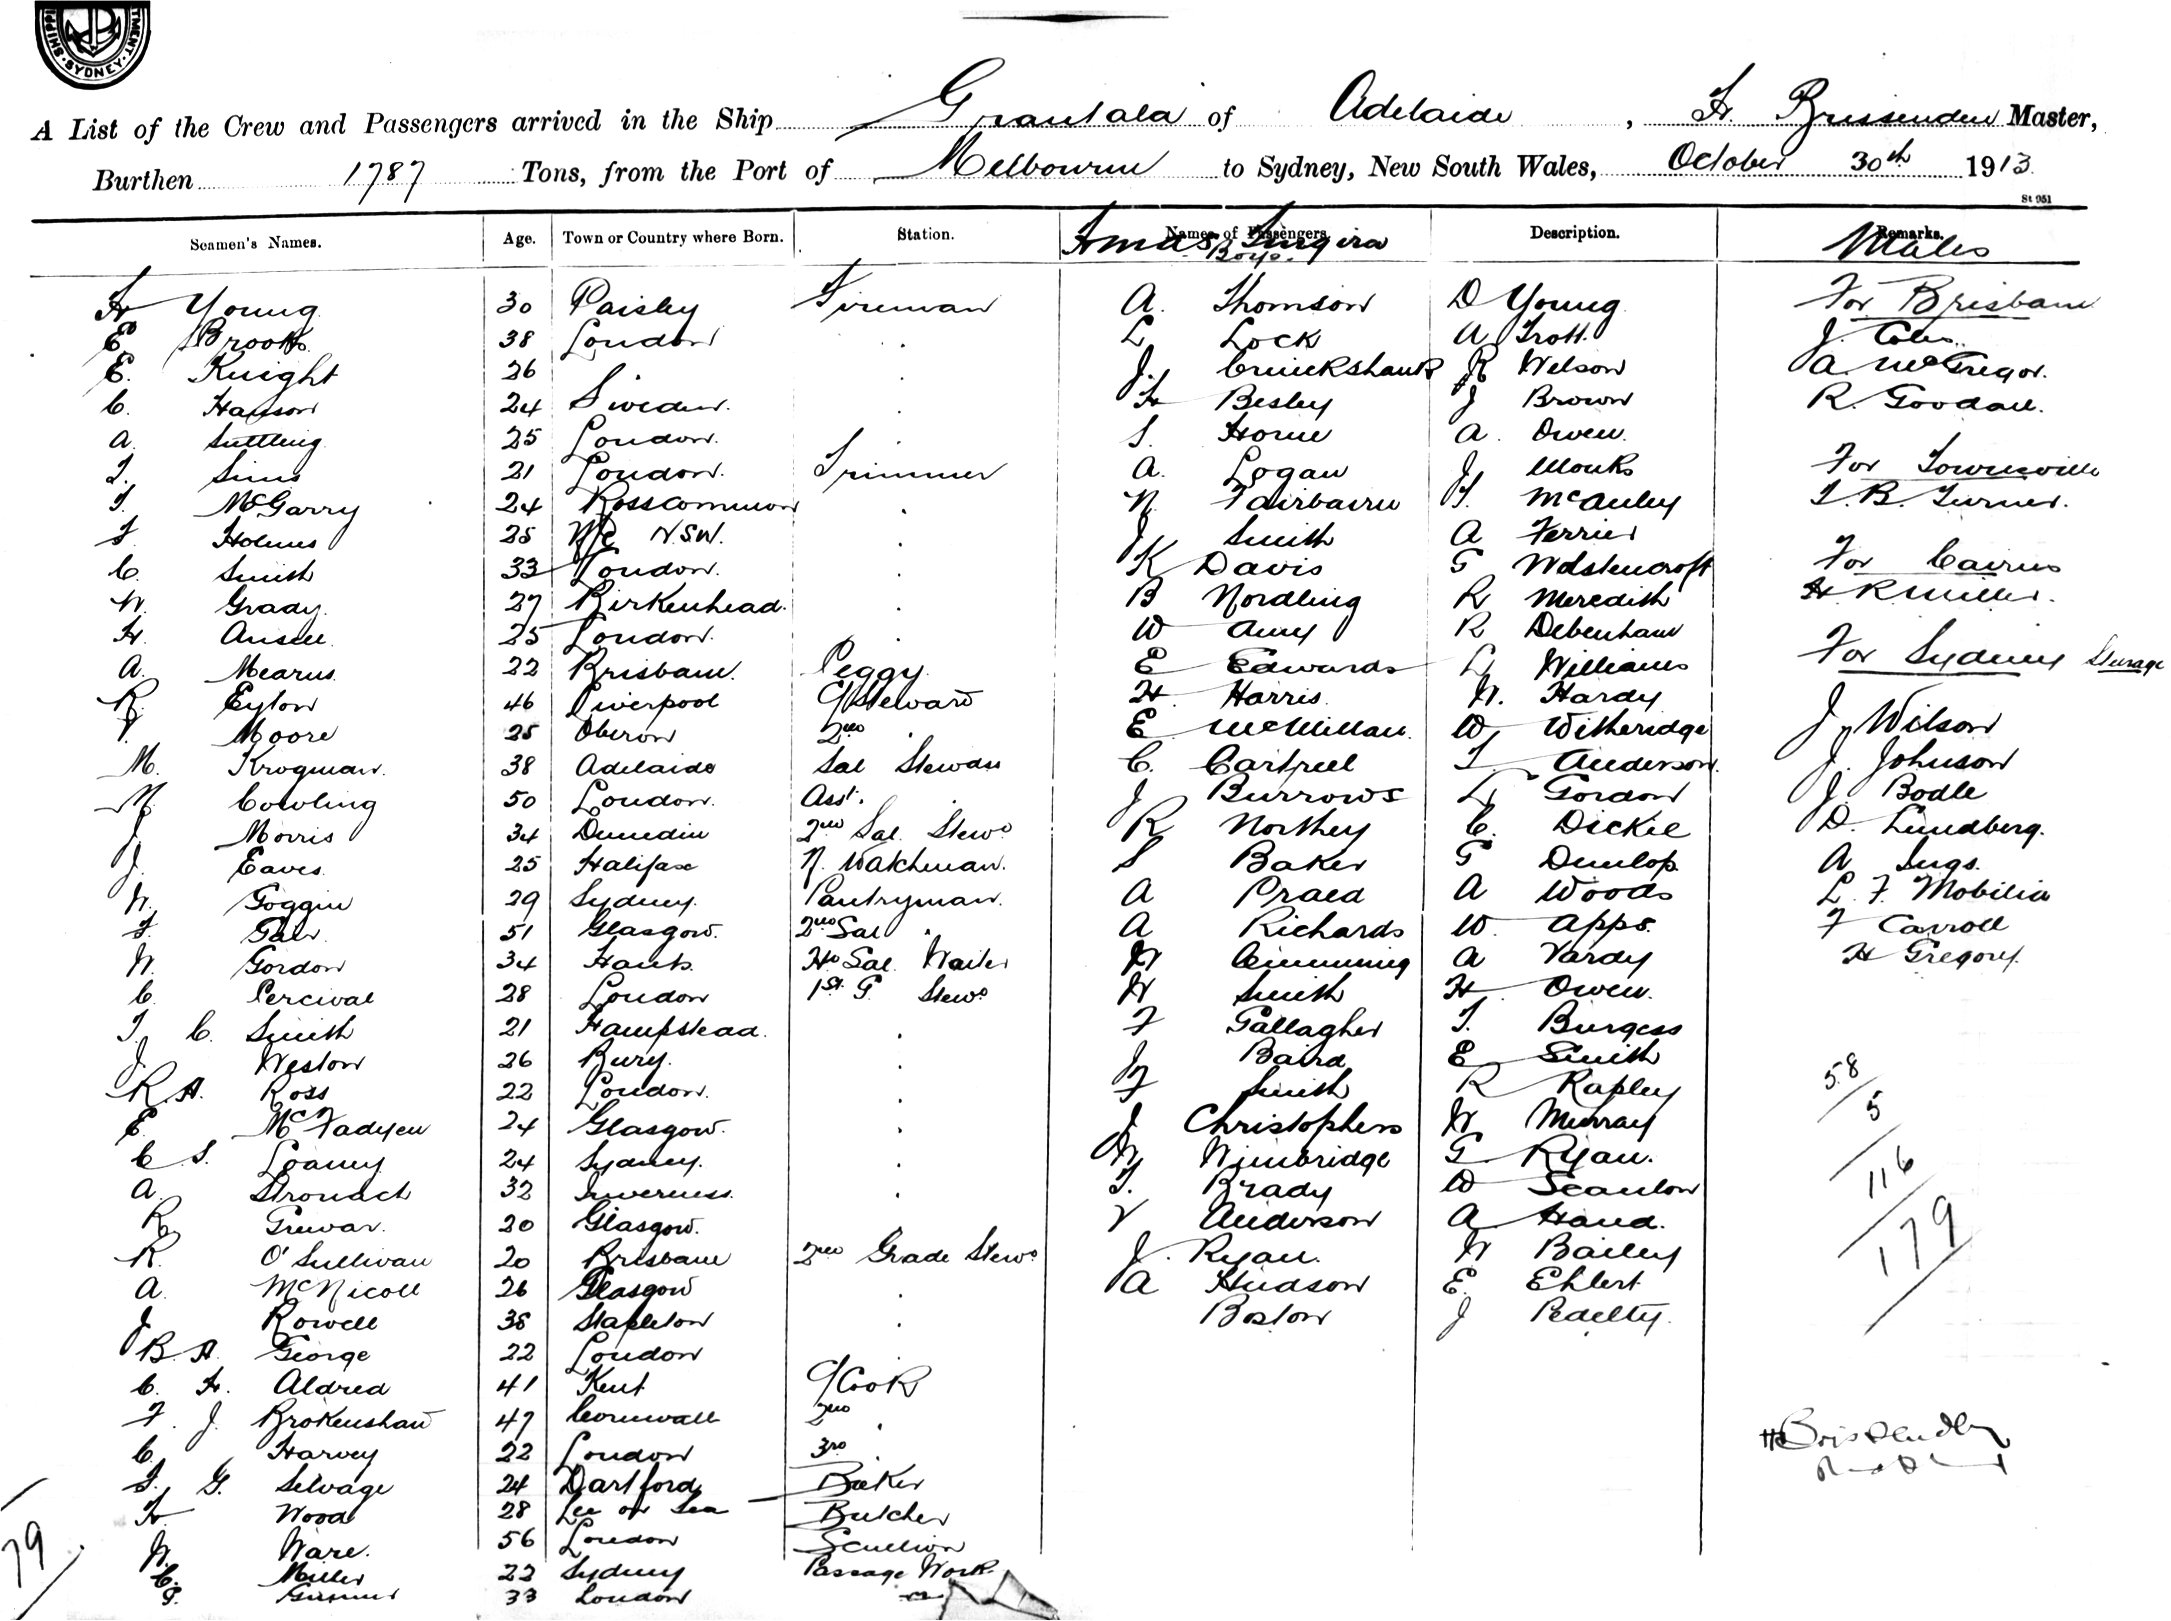 SHIPPI TMENT. SYDNEY.
A List of the Crew and Passengers arrived in the Ship Grantala of Adelaide, H. Brissenden Master,
Burthen 1787 Tons, from the Port of Melbourne to Sydney, New South Wales, October 30th 1913.
St 951
Seamen's Names. Age. Town or Country where Born. Station. Names of Passengers Description. Remarks.
Boys. Males
H Young 30 Paisley Fireman A. Thomson D Young For Brisbane
E Brooks 38 London . L Lock A Trott. J. Coles.
E. Knight 26 . J. Cruickshank R Welson A. McGregor.
C. Hanson 24 Sweden. . H Besley J Brown R. Goodall.
A. Suttling 25 London. . S. Horne A. Owen.
T. Sims 21 London. Trimmer A. Logan J. Monks For Townsville
T. McGarry 24 Rosscommon . N. Fairbairn H. McAuley T. B. Turner.
F. Holmes 25 N/C N.S.W. . J Smith A Ferrier
C. Smith 33 London. . K Davis G Wolstencroft For Cairns
W. Grady. 27 Birkenhead. . B Nordling R Meredith H R Miller.
H. Ansell 25 London. . W Amy R Debenham
A. Mearns. 22 Brisbane. Peggy. E Edwards L Williams For Sydney Sturage
R. Eylon 46 Liverpool C/Steward H. Harris. W. Hardy
Moore 25 Oberon 2nd . E McMillan. W Witheridge J Wilson
M. Krogman. 38 Adelaide Sal Steward C. Cartrell T Anderson. J. Johnson
Cowling 50 London. Asst. . J Burrows L Gordon J. Bodle
J. Morris 34 Dunedin 2nd Sal. Stewd R Northey C. Dickie D. Lundberg.
J. Eaves. 25 Halifax N. Watchman. S Baker G Dunlop. A Ings.
W. Goggin 29 Sydney. Pantryman. A Praed A Woods L. F. Mobilia
F. Gair. 51 Glasgow. 2nd Sal . A Richards W. Apps. F Carroll
W. Gordon 34 Hants. Hd Sal. Waiter W Cimming A Vardy H Gregory.
C. Percival 28 London 1st G. Stewd W Smith H. Owen.
T. C. Smith 21 Hampstead. . F Gallagher T. Burgess
J. Weston 26 Bury. . J. Baird E Smith
R. A. Ross 22 London. . F Smith R Rapley 58
E. McFadyen 24 Glasgow. . J Christophers W Murray 5
C. S. Loamy 24 Sydney. . W Wimbridge G Ryan. 116
A. Stronach 32 Inverness. . T. Brady W Scanlon
R. Grewar. 20 Glasgow. V Anderson A Hand. 179
R. O'Sullivan 20 Brisbane 2nd Grade Stewd J. Ryan. W Bailey
A. McNicoll 26 Glasgow . A Hudson E. Ehlert
J. Rowell 38 Stapleton . Boston J Pedelty.
B. A. George 22 London .
C. H. Aldred 41 Kent C/Cook
F. J. Brokenshaw 47 Cornwall 2nd .
C. Harvey 22 London 3rd .
T. G. Selvage 24 Dartford Baker
H Wood 28 Lee on Sea Butcher
W. Ware. 56 London Scullion
C. Miller 22 Sydney Passage Work.
33 London
79